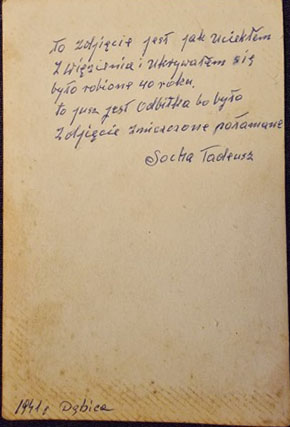 to zdjęcie jest jak uciekłem
z więzienia i ukrywałem się
było robione 40 roku.
to jusz jest odbitka bo było
zdjęcie zniszczone połamane
Socha Tadeusz
1941r Dębica